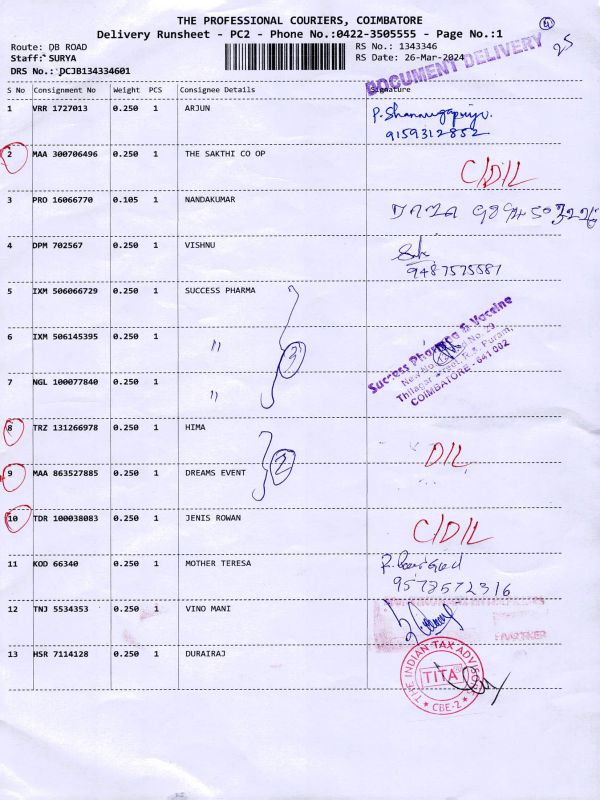 THE PROFESSIONAL COURIERS, COIMBATORE
Delivery Runsheet - PC2 - Phone No.:0422-3505555 - Page No.:1
4
25
Route: DB ROAD
Staff: SURYA
DRS No.: DCJB134334601
RS No.: 1343346
RS Date: 26-Mar-2024
DOCUMENT DELIVERY
S No Consignment No Weight PCS Consignee Details Signature
1 VRR 1727013 0.250 1 ARJUN P. Shanmugapriya.
9159312852
2 MAA 300706496 0.250 1 THE SAKTHI CO OP C/D/L
3 PRO 16066770 0.105 1 NANDAKUMAR
4 DPM 702567 0.250 1 VISHNU
9487575581
5 IXM 506066729 0.250 1 SUCCESS PHARMA
6 IXM 506145395 0.250 1 " 3
Success Pharma & Vaccine
Thilagar Street, R.S. Puram,
COIMBATORE - 641 002
7 NGL 100077840 0.250 1 "
8 TRZ 131266978 0.250 1 HIMA D/L
9 MAA 863527885 0.250 1 DREAMS EVENT 2
10 TDR 100038083 0.250 1 JENIS ROWAN C/D/L
11 KOD 66340 0.250 1 MOTHER TERESA
9573572316
12 TNJ 5534353 0.250 1 VINO MANI
13 HSR 7114128 0.250 1 DURAIRAJ
THE INDIAN TAX ADVISORS
TITA
CBE-2